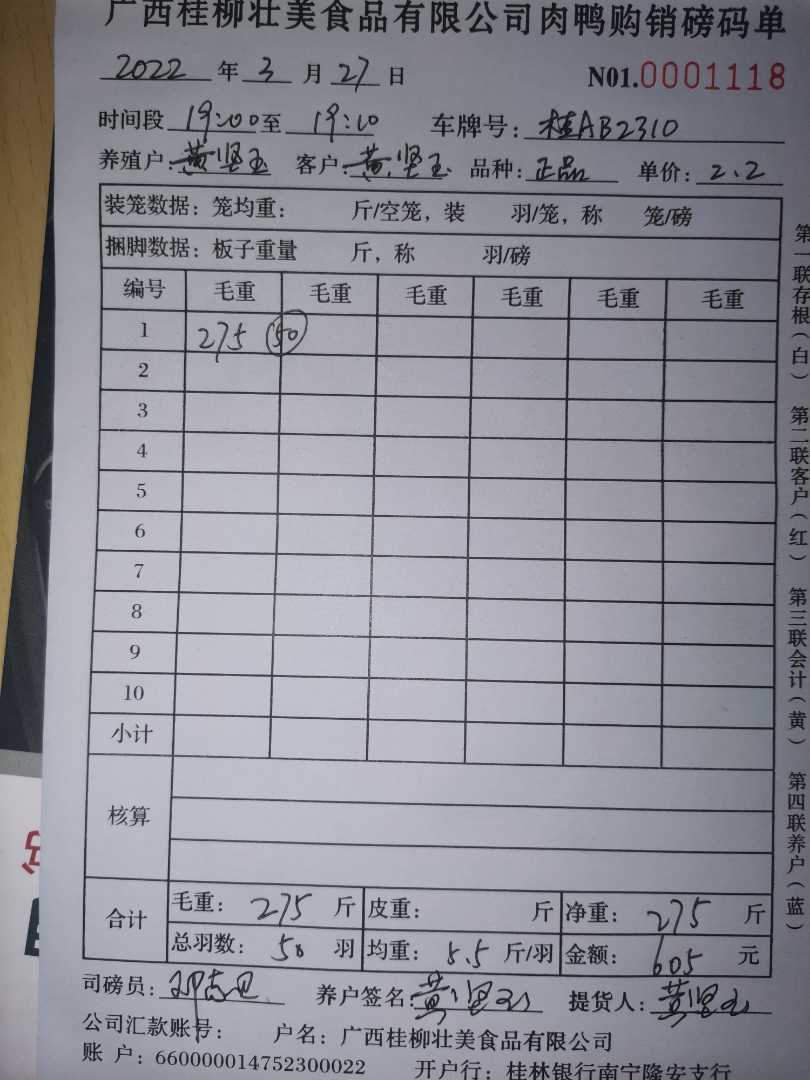 广西桂柳壮美食品有限公司肉鸭购销磅码单
2022 年 3 月 27 日 N01.0001118
时间段 19:00 至 19:10 车牌号: 桂AB2310
养殖户: 黄坚玉 客户: 黄坚玉 品种: 正品 单价: 2.2
装笼数据: 笼均重: 斤/空笼, 装 羽/笼, 称 笼/磅
捆脚数据: 板子重量 斤, 称 羽/磅
编号 毛重 毛重 毛重 毛重 毛重 毛重
1 275 50
2
3
4
5
6
7
8
9
10
小计
核算
合计 毛重: 275 斤 皮重: 斤 净重: 275 斤
总羽数: 50 羽 均重: 5.5 斤/羽 金额: 605 元
司磅员: 养户签名: 黄坚玉 提货人: 黄坚玉
公司汇款账号: 户名: 广西桂柳壮美食品有限公司
账 户: 660000014752300022 开户行: 桂林银行南宁隆安支行
第一联存根(白) 第二联客户(红) 第三联会计(黄) 第四联养户(蓝)